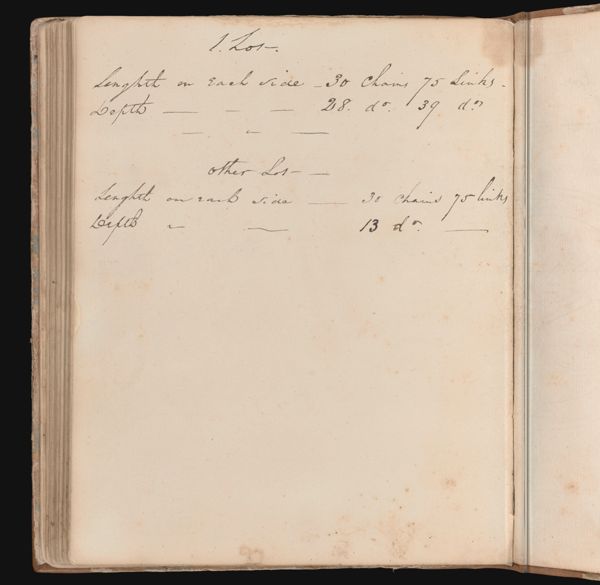 1. Lot -
Lenght on Each side - 30 Chains 75 Links -
Depth — - — 28. do. 39 do
— " —
other Lot - —
Lenght on each side — 30 chains 75 links
Depth - — 13 do. —